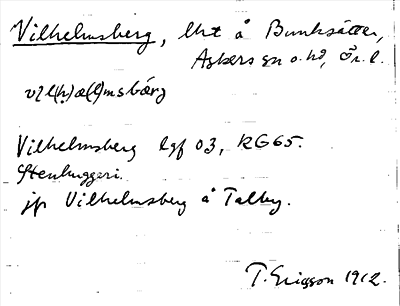 Vilhelmsberg, lht å Bunksätter,
Askers sn o. hd, Ör. l.
Vilhelmsberg lgf 03, RG65.
Stenhuggeri.
jfr Vilhelmsberg å Talby.
T. Ericsson 1912.